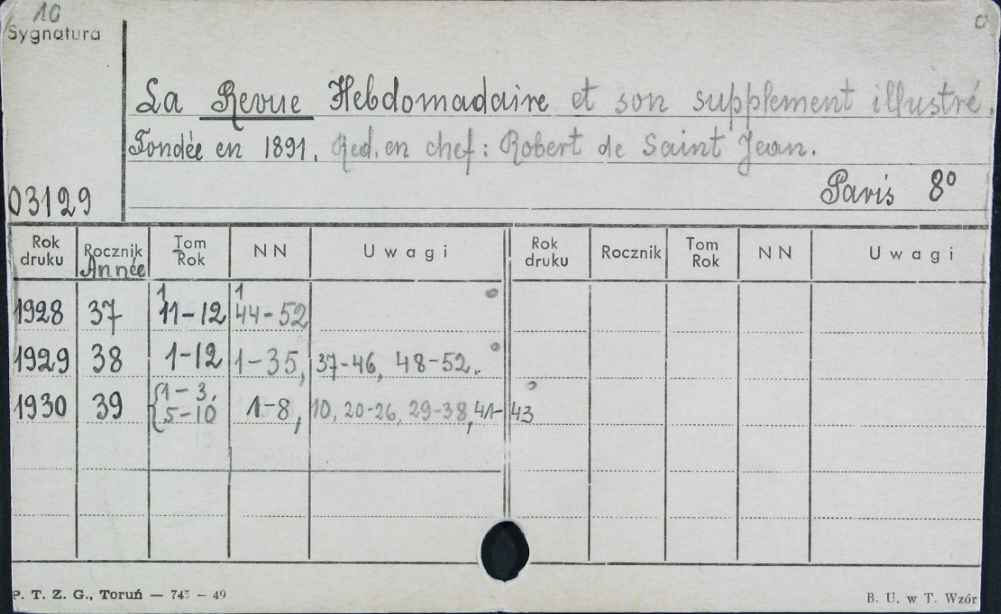 10
Sygnatura
La Revue Hebdomadaire et son supplement illustré.
Fondée en 1891. Red. en chef: Robert de Saint Jean.
Paris 8°
03129
Rok druku Rocznik Année Tom Rok NN Uwagi Rok druku Rocznik Tom Rok NN Uwagi
1928 37 11-12 44-52
1929 38 1-12 1-35, 37-46, 48-52.
1930 39 {1-3, 5-10 1-8, 10, 20-26, 29-38, 41-43
P. T. Z. G., Toruń — 745 — 49
B. U. w T. Wzór